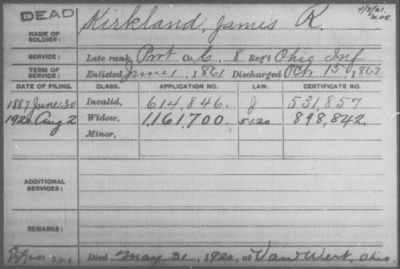 DEAD
NAME OF SOLDIER: Kirkland, James R.
SERVICE: Late rank, Pvt Co. C, 8 Reg't Ohio Inf
TERM OF SERVICE: Enlisted June 1, 1861 Discharged Oct 15, 1862
DATE OF FILING. CLASS. APPLICATION NO. LAW. CERTIFICATE NO.
1887 June 30 Invalid, 614,846. J 531,857
1920 Aug 2 Widow, 1,161,700. 5120 898,842.
Minor,
ADDITIONAL SERVICES:
REMARKS:
Died May 31, 1920, at Van Wert, Ohio